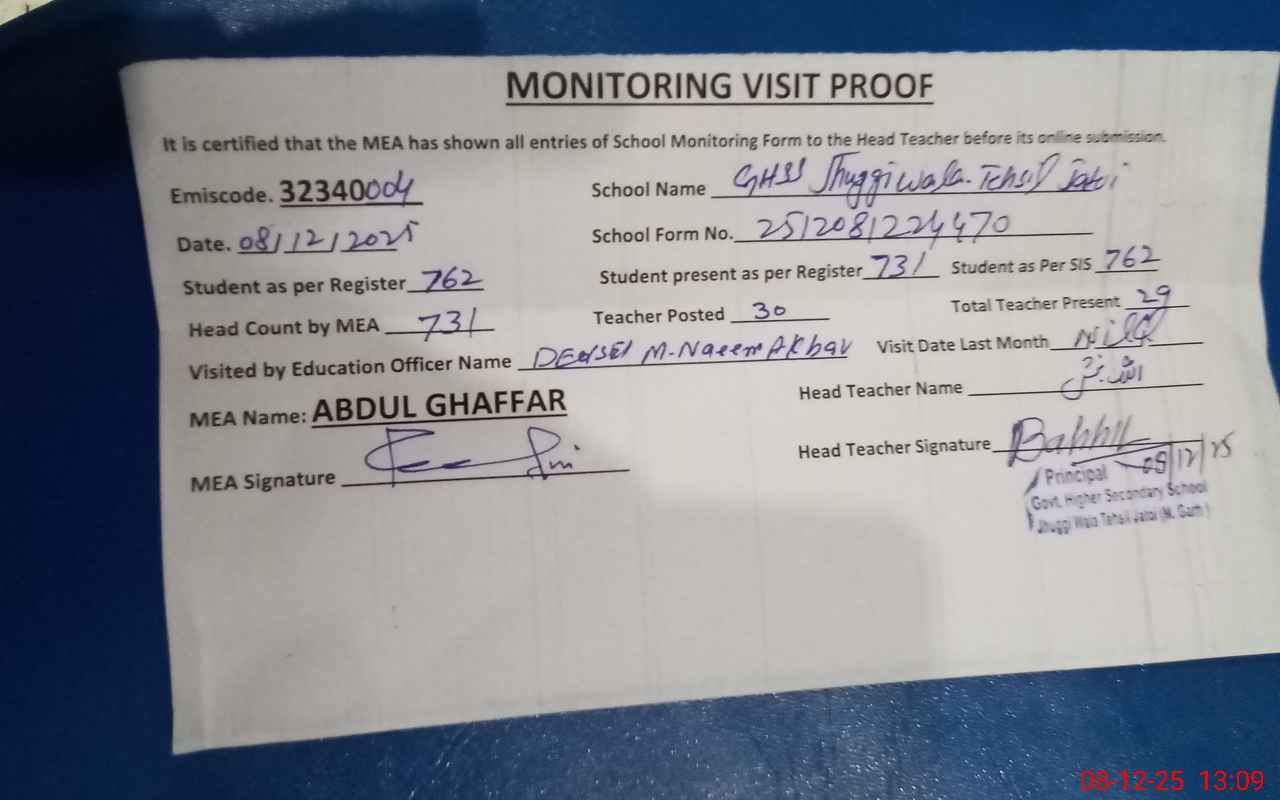 MONITORING VISIT PROOF
It is certified that the MEA has shown all entries of School Monitoring Form to the Head Teacher before its online submission.
Emiscode. 32340004 School Name GHSS Jhuggiwala. Tehsil Jatoi
Date. 08/12/2025 School Form No. 251208122
Student as per Register 762 Student present as per Register 731 Student as Per SIS 762
Head Count by MEA 731 Teacher Posted 30 Total Teacher Present 29
Visited by Education Officer Name M. Naeem Akbar Visit Date Last Month
MEA Name: ABDUL GHAFFAR Head Teacher Name
MEA Signature Head Teacher Signature
08/12/25
Principal
Govt. Higher Secondary School
Jhuggi Wala Tehsil Jatoi (M. Garh)
08-12-25 13:09